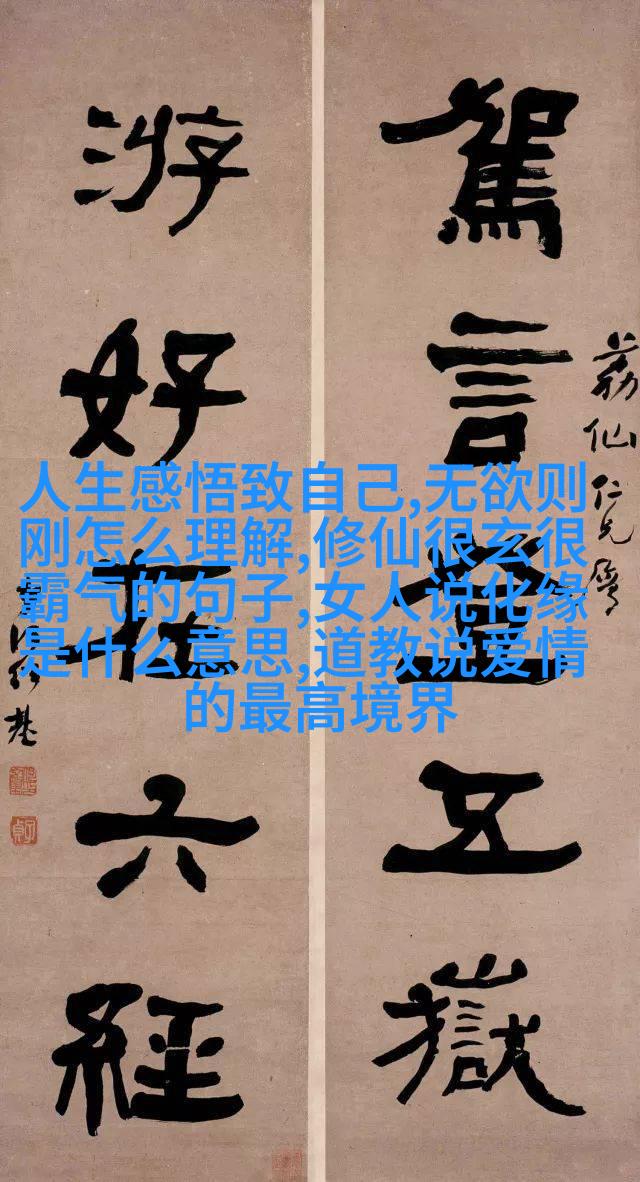 荔仙仁兄屬
駕言登五嶽
游好在六經
何紹基
子貞
人生感悟致自己,无欲则
刚怎么理解,修仙很玄很
霸气的句子,女人说化缘
是什么意思,道教说爱情
的最高境界